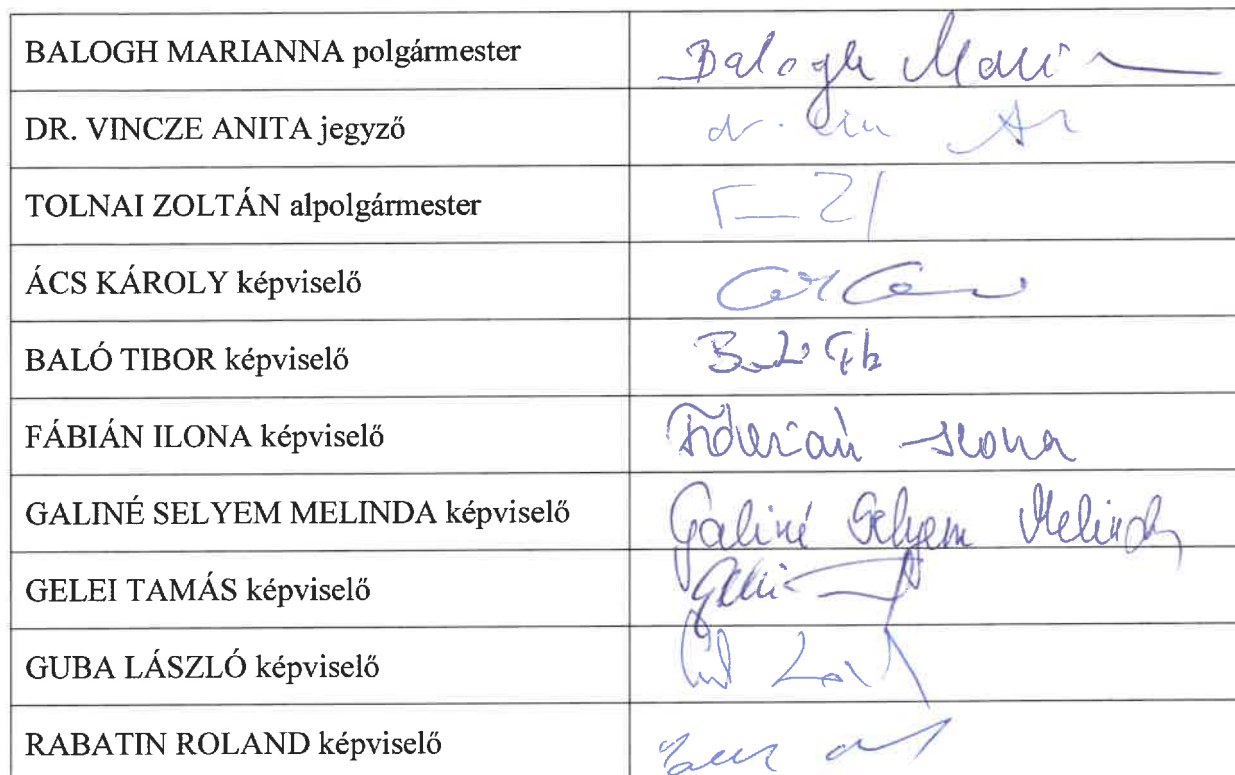 BALOGH MARIANNA polgármester Balogh Mari
DR. VINCZE ANITA jegyző dr.
TOLNAI ZOLTÁN alpolgármester
ÁCS KÁROLY képviselő
BALÓ TIBOR képviselő
FÁBIÁN ILONA képviselő Fábián Ilona
GALINÉ SELYEM MELINDA képviselő Galiné Selyem Melinda
GELEI TAMÁS képviselő
GUBA LÁSZLÓ képviselő
RABATIN ROLAND képviselő